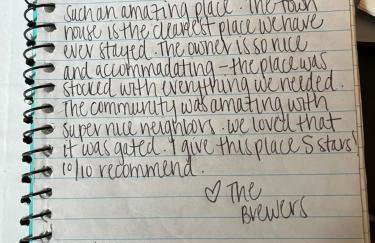 such an amazing place. The town
house is the cleanest place we have
ever stayed. The owner is so nice
and accommadating - the place was
stocked with everything we needed.
The community was amazing with
super nice neighbors. We loved that
it was gated. I give this place 5 stars!
10/10 recommend.
♡ The
Brewers